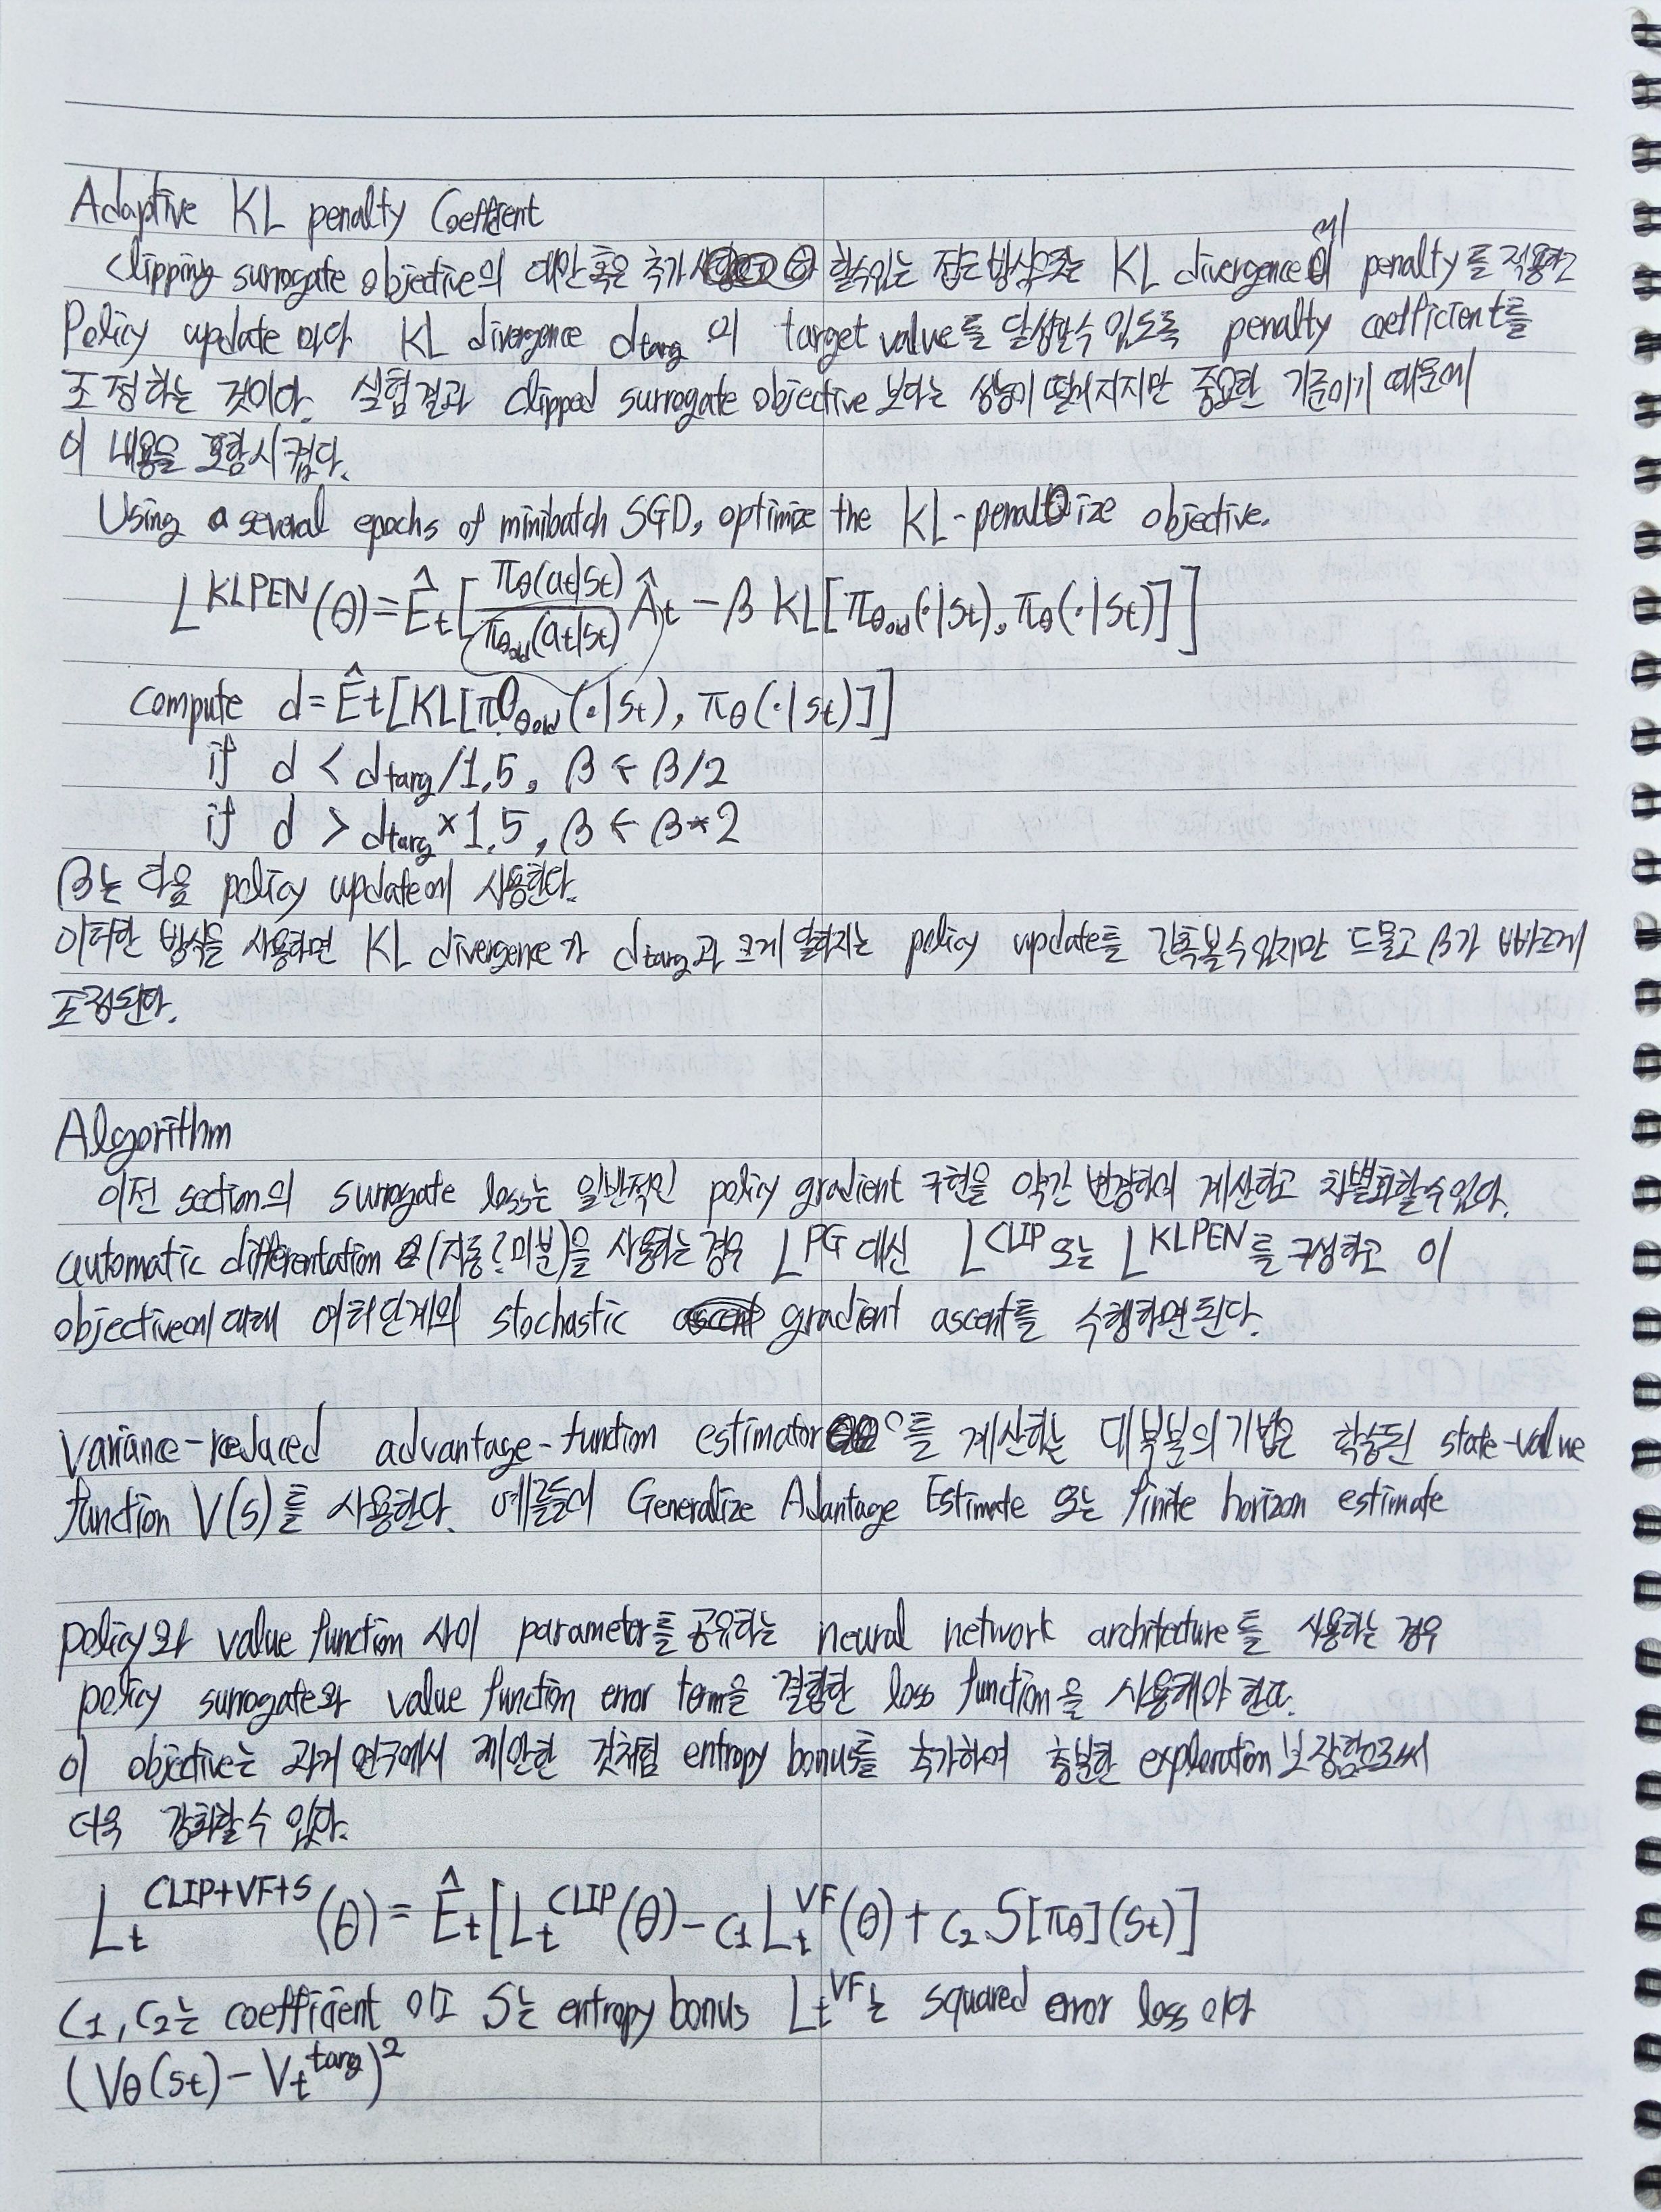 Adaptive KL penalty Coefficient
Clipping surrogate objective의 대안 혹은 추가 할수있는 접근 방식으로는 KL divergence에 penalty를 적용하고
Policy update 마다 KL divergence dtarg 의 target value를 달성할수 있도록 penalty coefficient를
조정하는 것이다. 실험결과 clipped surrogate objective 보다는 성능이 떨어지지만 중요한 기준이기 때문에
이 내용을 포함시켰다.
Using a several epochs of minibatch SGD, optimize the KL-penalize objective.
L^KLPEN(θ) = Êt[πθ(at|st)/πθold(at|st) Ât - β KL[πθold(·|st), πθ(·|st)]]
compute d = Êt[KL[πθold(·|st), πθ(·|st)]]
if d < dtarg/1.5, β ← β/2
if d > dtarg×1.5, β ← β*2
β는 다음 policy update에 사용한다.
이러한 방식을 사용하면 KL divergence가 dtarg과 크게 달라지는 policy update를 간혹볼수있지만 드물고 β가 빠르게
조정된다.
Algorithm
이전 section의 surrogate loss는 일반적인 policy gradient 구현을 약간 변경하여 계산하고 차별화할수있다.
automatic differentation (자동?미분)을 사용하는 경우 L^PG 대신 L^CLIP 또는 L^KLPEN를 구성하고 이
objective에 대해 여러단계의 stochastic gradient ascent를 수행하면된다.
Variance-reduced advantage-function estimator를 계산하는 대부분의 기법은 학습된 state-value
function V(s)를 사용한다. 예를들어 Generalize Advantage Estimate 또는 finite horizon estimate
policy와 value function 사이 parameter를 공유하는 neural network architecture를 사용하는 경우
policy surrogate와 value function error term을 결합한 loss function을 사용해야 한다.
이 objective는 과거 연구에서 제안한 것처럼 entropy bonus를 추가하여 충분한 exploration 보장함으로써
더욱 강화할수 있다.
Lt^CLIP+VF+S(θ) = Êt[Lt^CLIP(θ) - c1 Lt^VF(θ) + c2 S[πθ](st)]
C1, C2는 coefficient 이고 S는 entropy bonus Lt^VF는 squared error loss 이다
(Vθ(st) - Vt^targ)^2